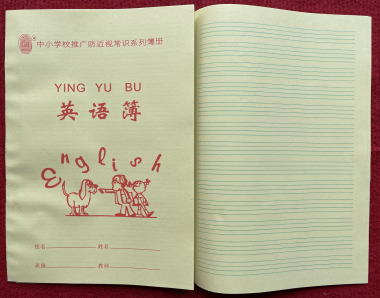 中小学校推广防近视常识系列簿册
YING YU BU
英语簿
English
校名 姓名
班级 教师